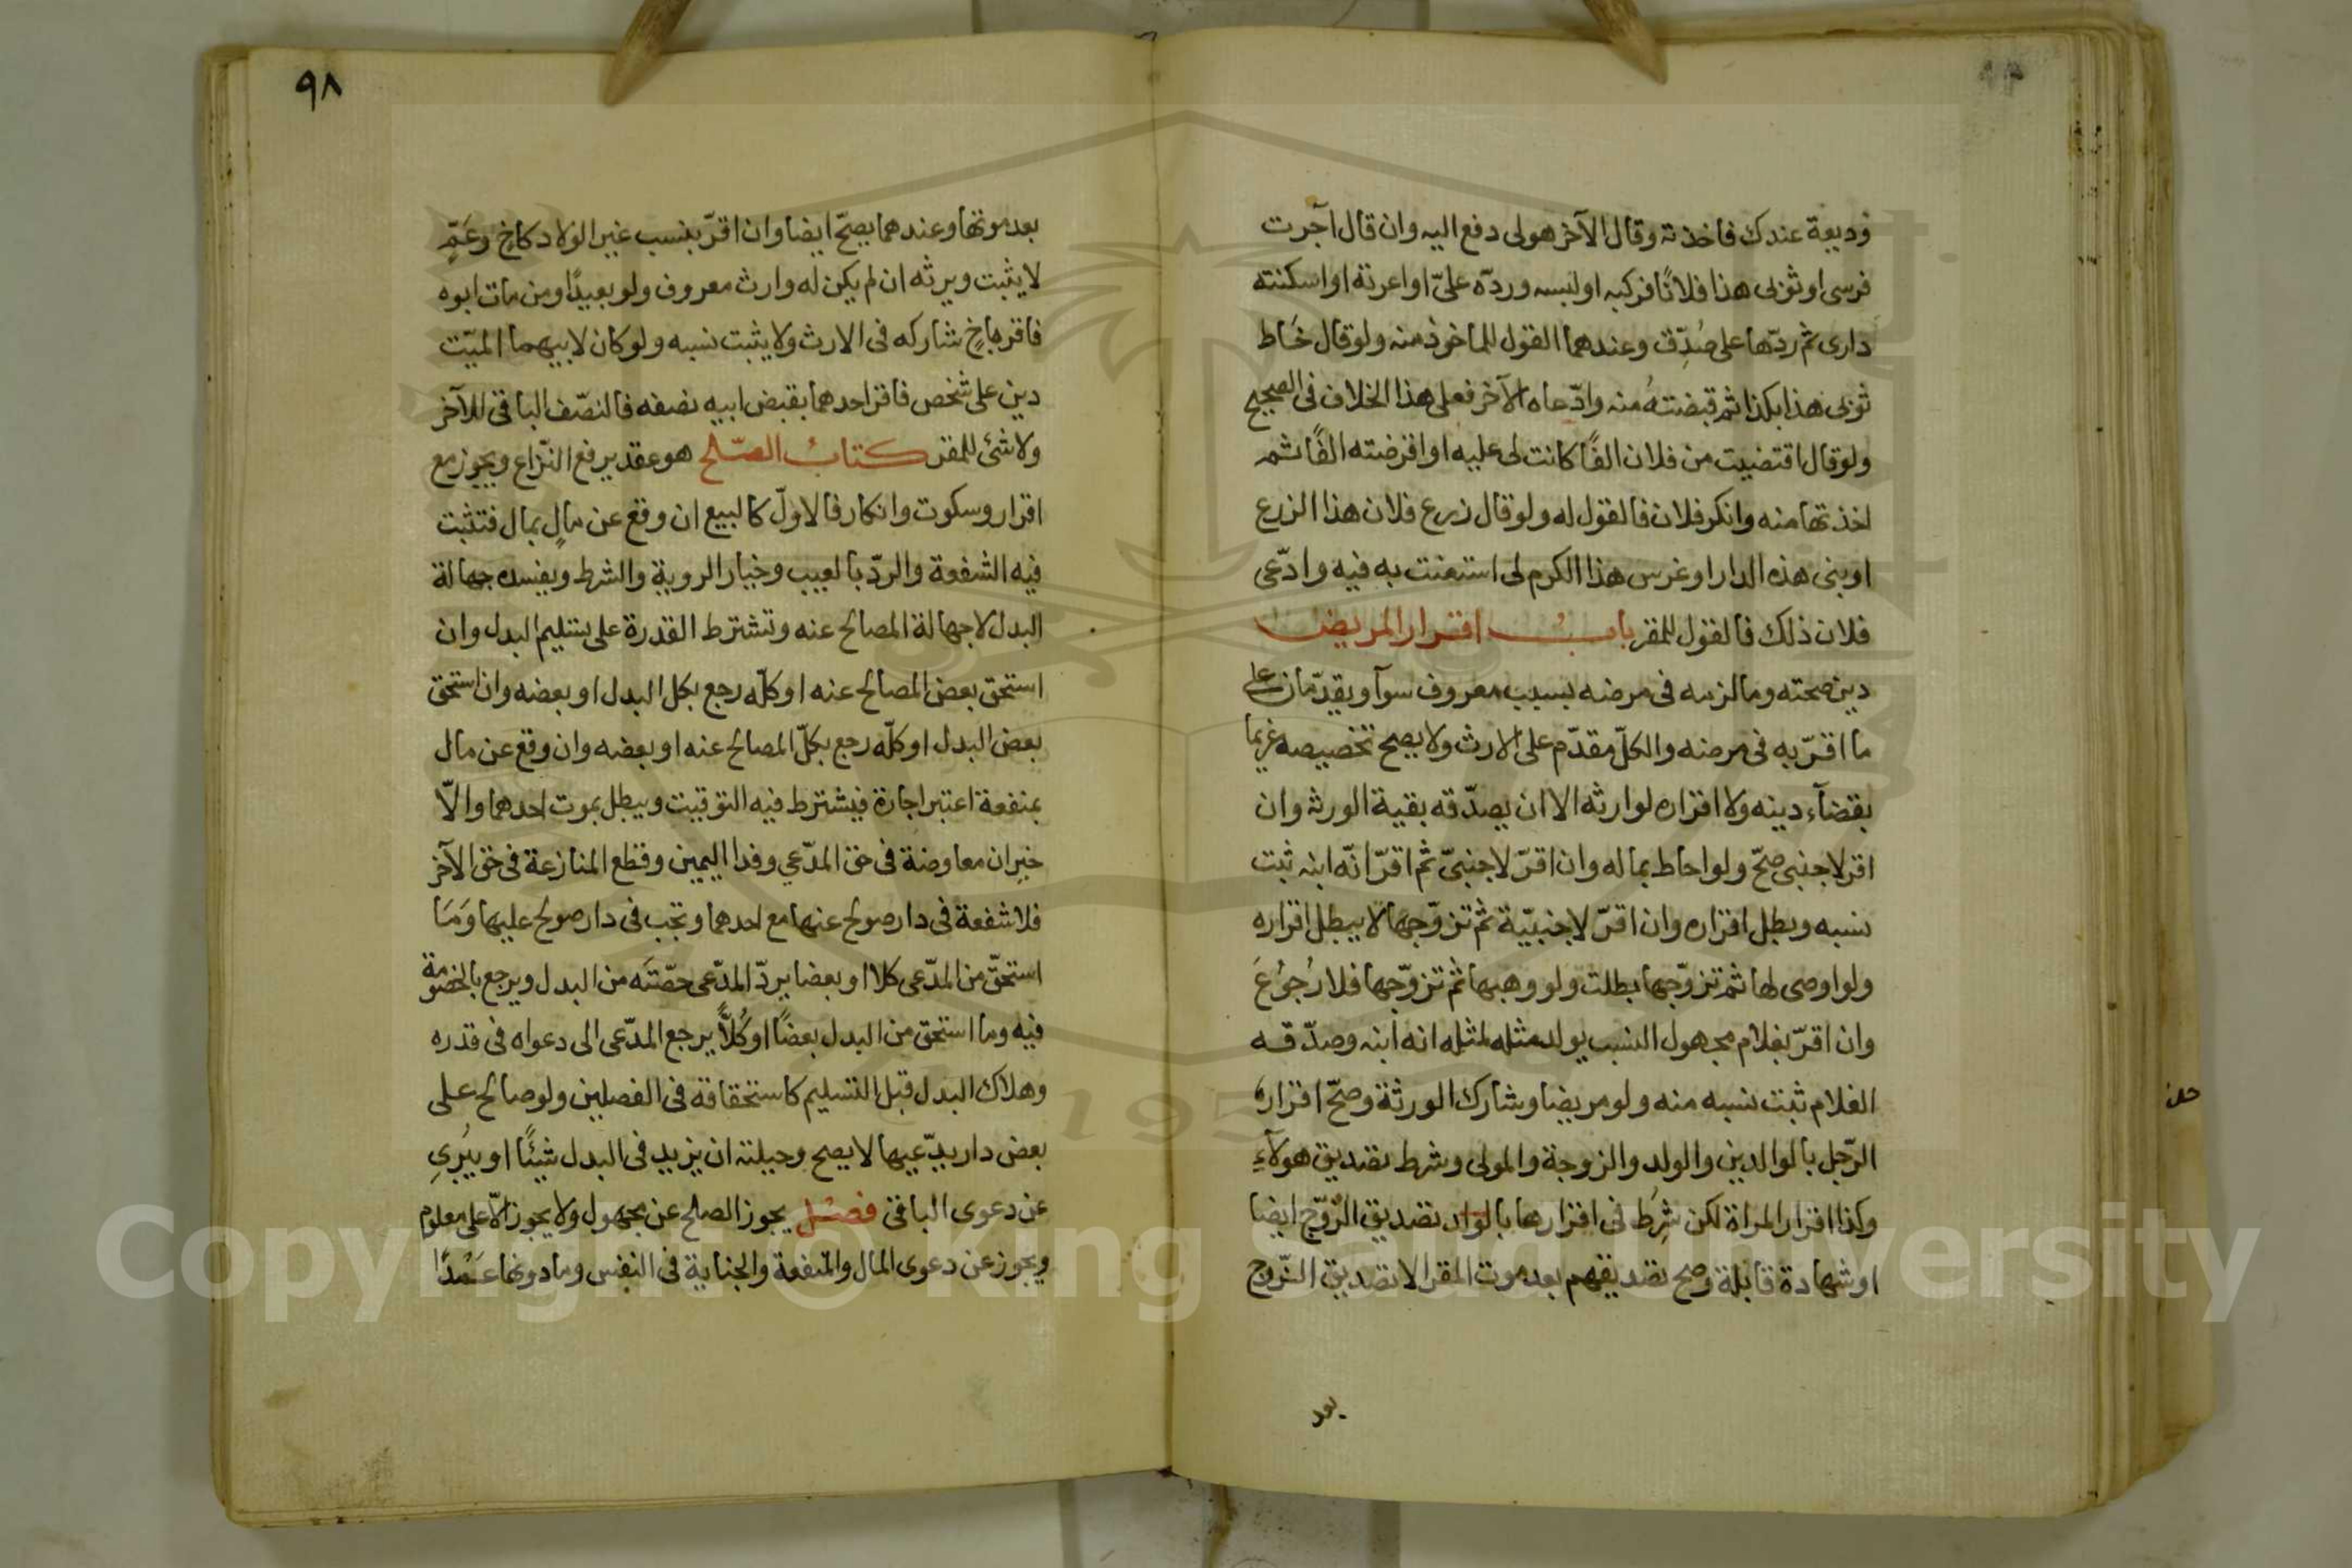 وديعة عندك فاخذته وقال الآخر هو لى دفع اليه وان قال آجرت
فرسى او ثوبى هذا فلانًا فركبه او لبسه وردّه علىّ او اعرته او اسكنته
دارى ثم ردّها على صُدِّق وعندهما القول للماخوذ منه ولو قال خَاط
ثوبى هذا بكذا ثم قبضتهُ منه وادّعاه الآخر فعلى هذا الخلاف فى الصحيح
ولو قال اقتضيت من فلان الفًا كانت لى عليه او اقرضته الفًا ثم
اخذتها منه وانكر فلان فالقول له ولو قال زرع فلان هذا الزرع
او بنى هذه الدار او غرس هذا الكرم لى استعنت به فيه وادّعى
فلان ذلك فالقول للمقر بابُ اقرار المريض
دين صحته وما لزمه فى مرضه بسبب معروف سوآ ويقدّمان على
ما اقرّ به فى مرضه والكلّ مقدّم على الارث ولا يصح تخصيصه غريما
بقضآء دينه ولا اقراره لوارثه الا ان يصدّقه بقية الورثه وان
اقر لاجنبى صحّ ولو احاط بماله وان اقرّ لاجنبىّ ثم اقرّ انّه ابنه ثبت
نسبه وبطل اقراره وان اقرّ لاجنبيّة ثم تزوّجها لا يبطل اقراره
ولو اوصى لها ثم تزوّجها بطلت ولو وهبها ثم تزوّجها فلا رُجُوعَ
وان اقرّ بغلام مجهول النسب يولد مثله لمثله انه ابنه وصدّقه
الغلام ثبت نسبه منه ولو مريضا وشارك الورثة وصحّ اقرار
الرّجل بالوالدين والولد والزوجة والمولى وشرط تصديق هولآءِ
وكذا اقرار المراة لكن شُرِط فى اقرارها بالولد تصديق الزّوّج ايضا
او شهادة قابلة وصح تصديقهم بعد موت المقر الا تصديق الزّوج
بعد
٩٨
بعد موتها وعندهما يصحّ ايضا وان اقرّ بنسب غير الولاد كاخٍ وعَمٍّ
لا يثبت ويرثه ان لم يكن له وارث معروف ولو بعيدًا ومن مات ابوه
فاقر باخٍ شاركه فى الارث ولا يثبت نسبه ولو كان لابيهما الميّت
دين على شخص فاقر احدهما بقبض ابيه نصفه فالنصّف الباقى للآخر
ولا شئ للمقر كتابُ الصّلح هو عقد يرفع النّزاع ويجوز مع
اقرار وسكوت وانكار فالاولّ كالبيع ان وقع عن مالٍ بمال فتثبت
فيه الشفعة والردّ بالعيب وخيار الروية والشرط ويفسده جهالة
البدل لا جهالة المصالح عنه وتشترط القدرة على تسليم البدل وان
استحق بعض المصالح عنه او كلّه رجع بكل البدل او بعضه وان استحق
بعض البدل او كلّه رجع بكلّ المصالح عنه او بعضه وان وقع عن مال
بمنفعة اعتبر اجارة فيشترط فيه التوقيت ويبطل بموت احدهما والاّ
خيران معاوضة فى حق المدّعي وفدا اليمين وقطع المنازعة فى حق الآخر
فلا شفعة فى دار صولح عنها مع احدهما وتجب فى دار صولح عليها وَمَا
استحقّ من المدّعى كلا او بعضا يردّ المدّعى حصّته من البدل ويرجع بالخصومة
فيه وما استحق من البدل بعضًا او كُلاًّ يرجع المدّعى الى دعواه فى قدره
وهلاك البدل قبل التسليم كاستحقاقه فى الفصلين ولو صالح على
بعض دار يدّعيها لا يصح وحيلته ان يزيد فى البدل شيئًا او يُبرِى
عن دعوى الباقى فصْل يجوز الصلح عن مجهول ولا يجوز الاّ على معلوم
ويجوز عن دعوى المال والمنفعة والجناية فى النفس وما دونها عَمْدًا
Copyright © King Saud University